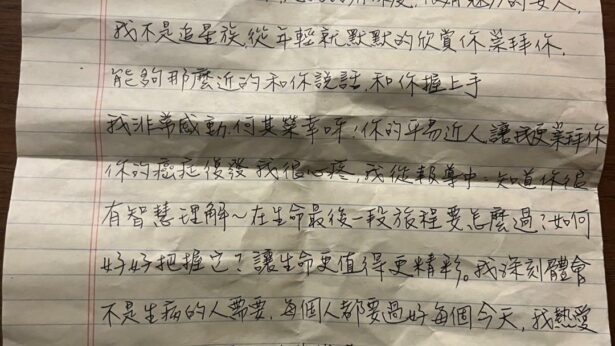 的女人,
我不是追星族,從年輕就默默的欣賞你崇拜你,
能夠那麼近的和你說話,和你握上手
我非常感動,何其榮幸呀!你的平易近人,讓我更崇拜你
你的癌症復發我很心疼,我從報導中.知道你很
有智慧理解~在生命最後一段旅程要怎麼過?如何
好好把握它?讓生命更值得更精彩。我深刻體會
不是生病的人需要,每個人都要過好每個今天,我熱愛